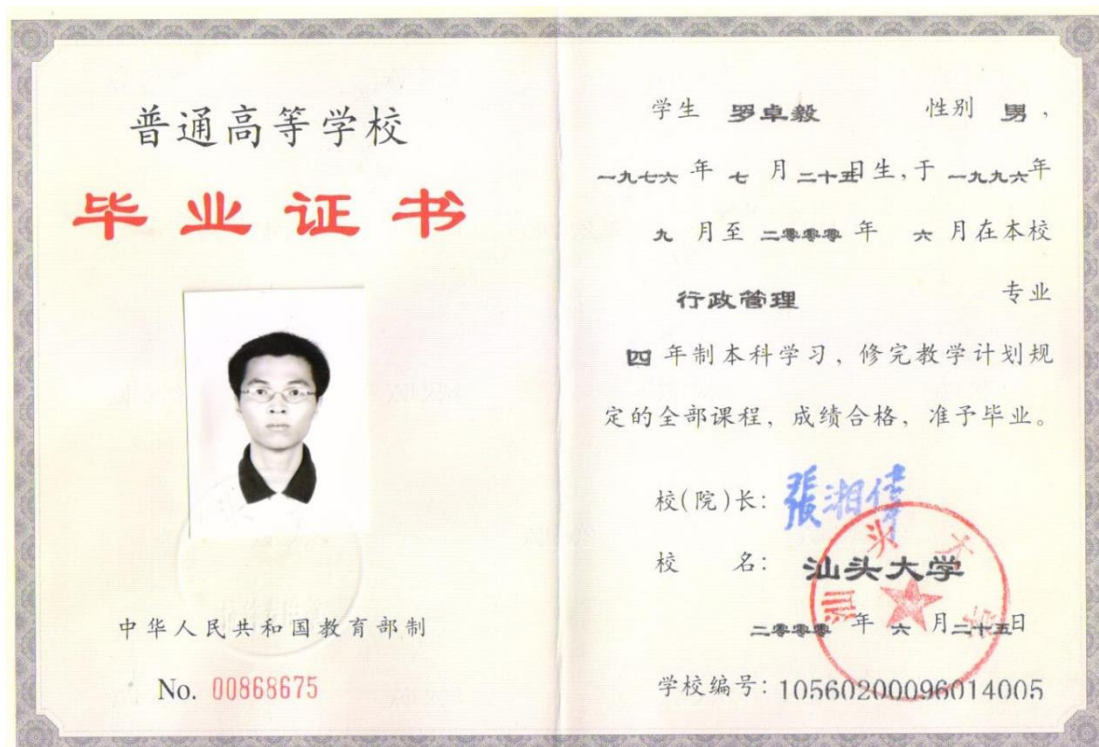 普通高等学校
毕业证书
中华人民共和国教育部制
No. 00868675
学生 罗卓毅 性别 男，
一九七六 年 七 月 二十五日生，于 一九九六年
九 月至 二零零零 年 六 月在本校
行政管理 专业
四 年制本科学习，修完教学计划规
定的全部课程，成绩合格，准予毕业。
校(院)长: 張湘偉
校 名: 汕头大学
汕头大学
二零零零 年 六 月二十五日
学校编号: 10560200096014005